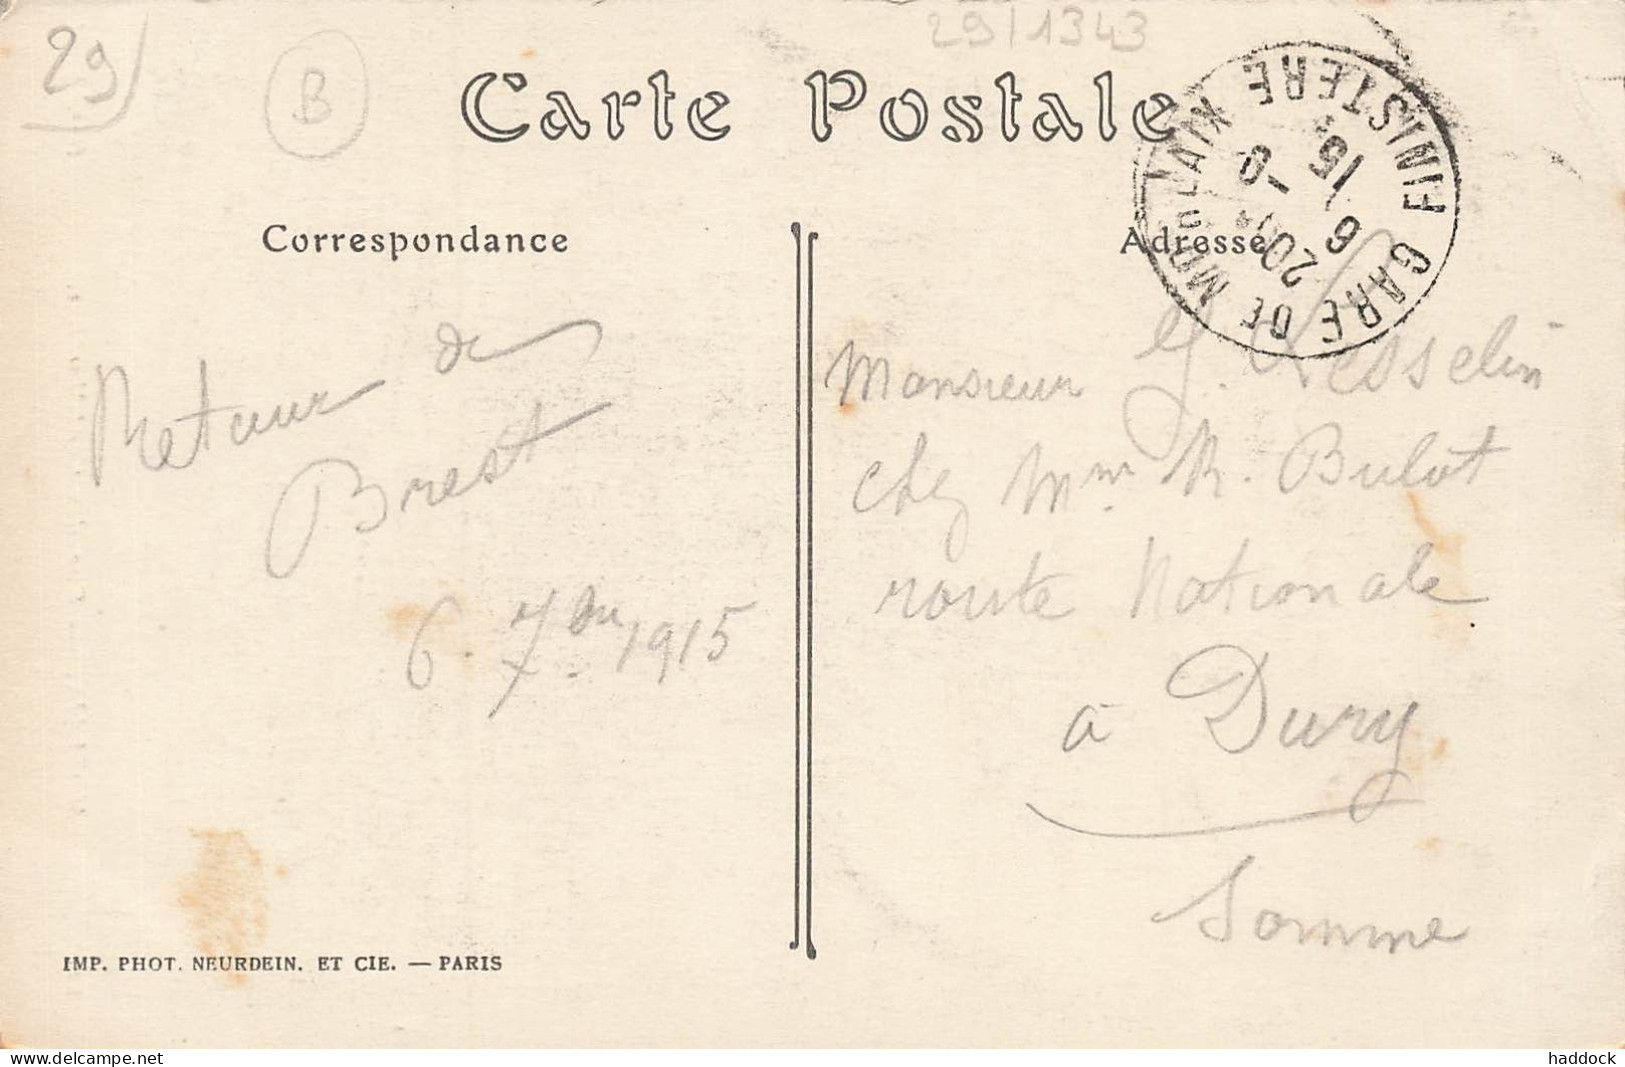 29
B
29/1343
Carte Postale
GARE DE MORLAIX FINISTERE
20
6
15
Correspondance
Adresse
Retour de
Brest
6. 7bre 1915
Monsieur G.
chez Mme R. Bulot
route Nationale
à Dury
Somme
IMP. PHOT. NEURDEIN. ET CIE. — PARIS
haddock